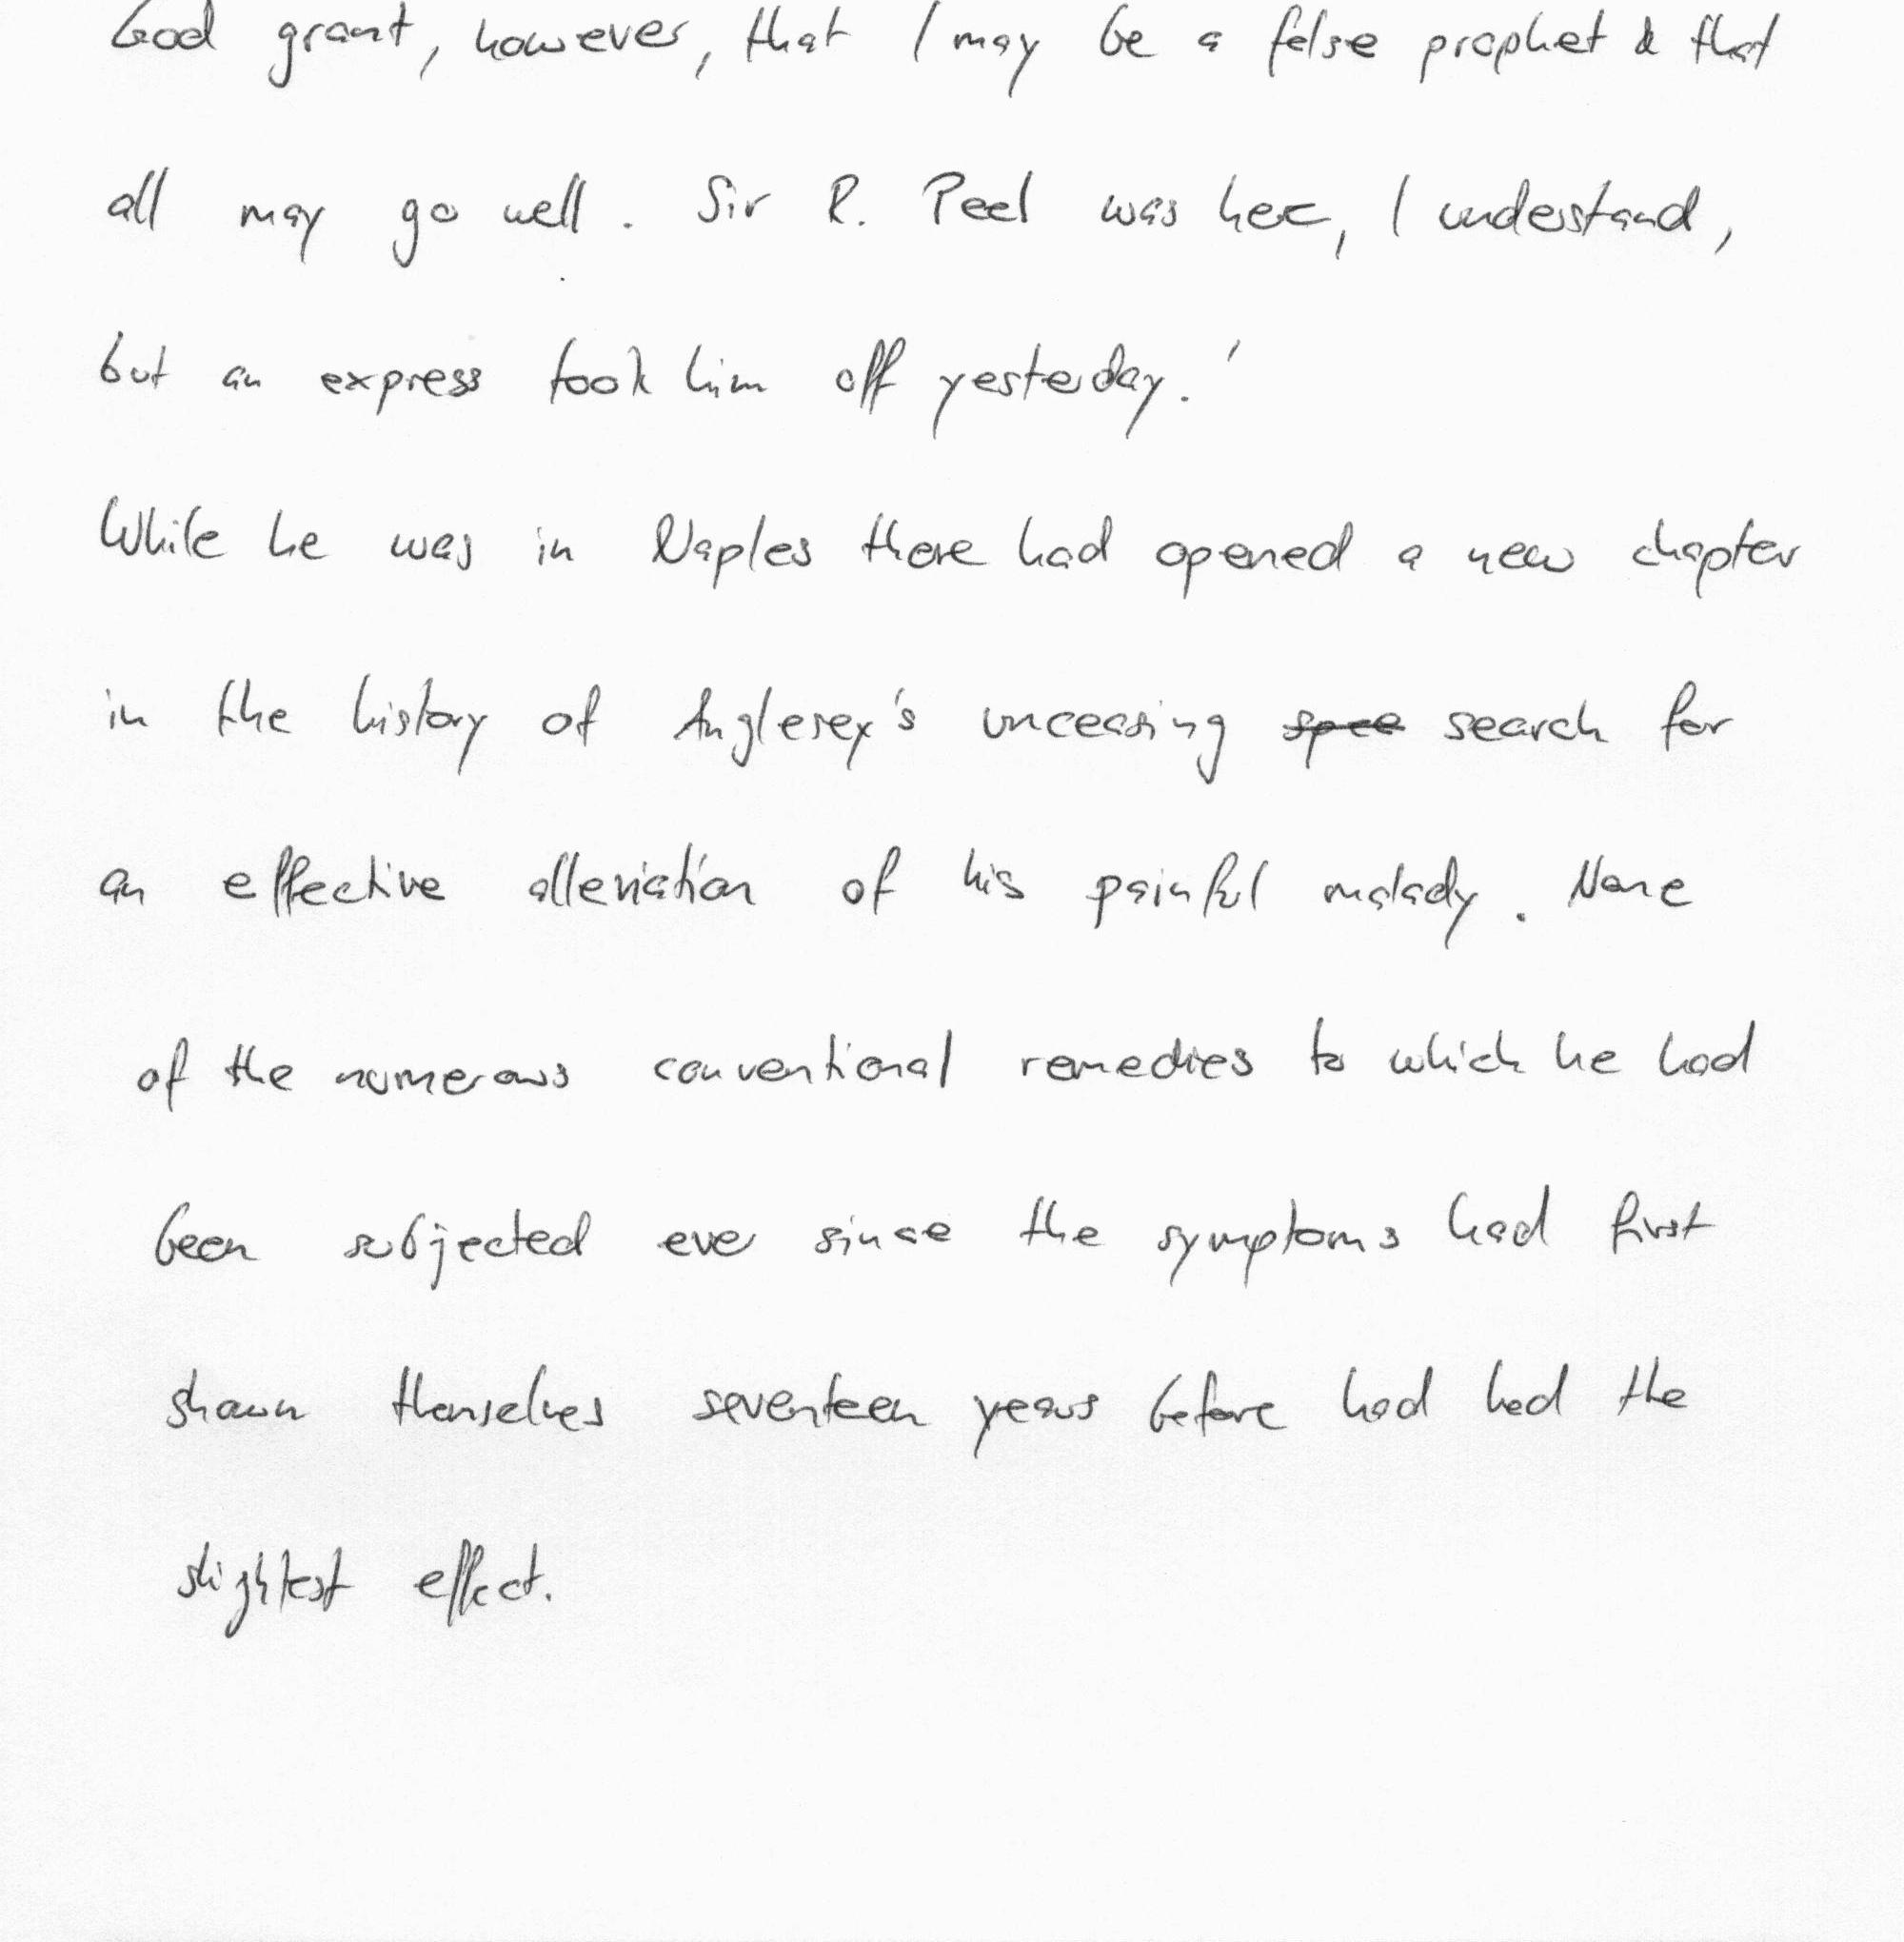 God grant, however, that I may be a false prophet & that
all may go well. Sir R. Peel was here, I understand,
but an express took him off yesterday.'
While he was in Naples there had opened a new chapter
in the history of Anglesey's unceasing search for
an effective alleviation of his painful malady. None
of the numerous conventional remedies to which he had
been subjected ever since the symptoms had first
shown themselves seventeen years before had had the
slightest effect.